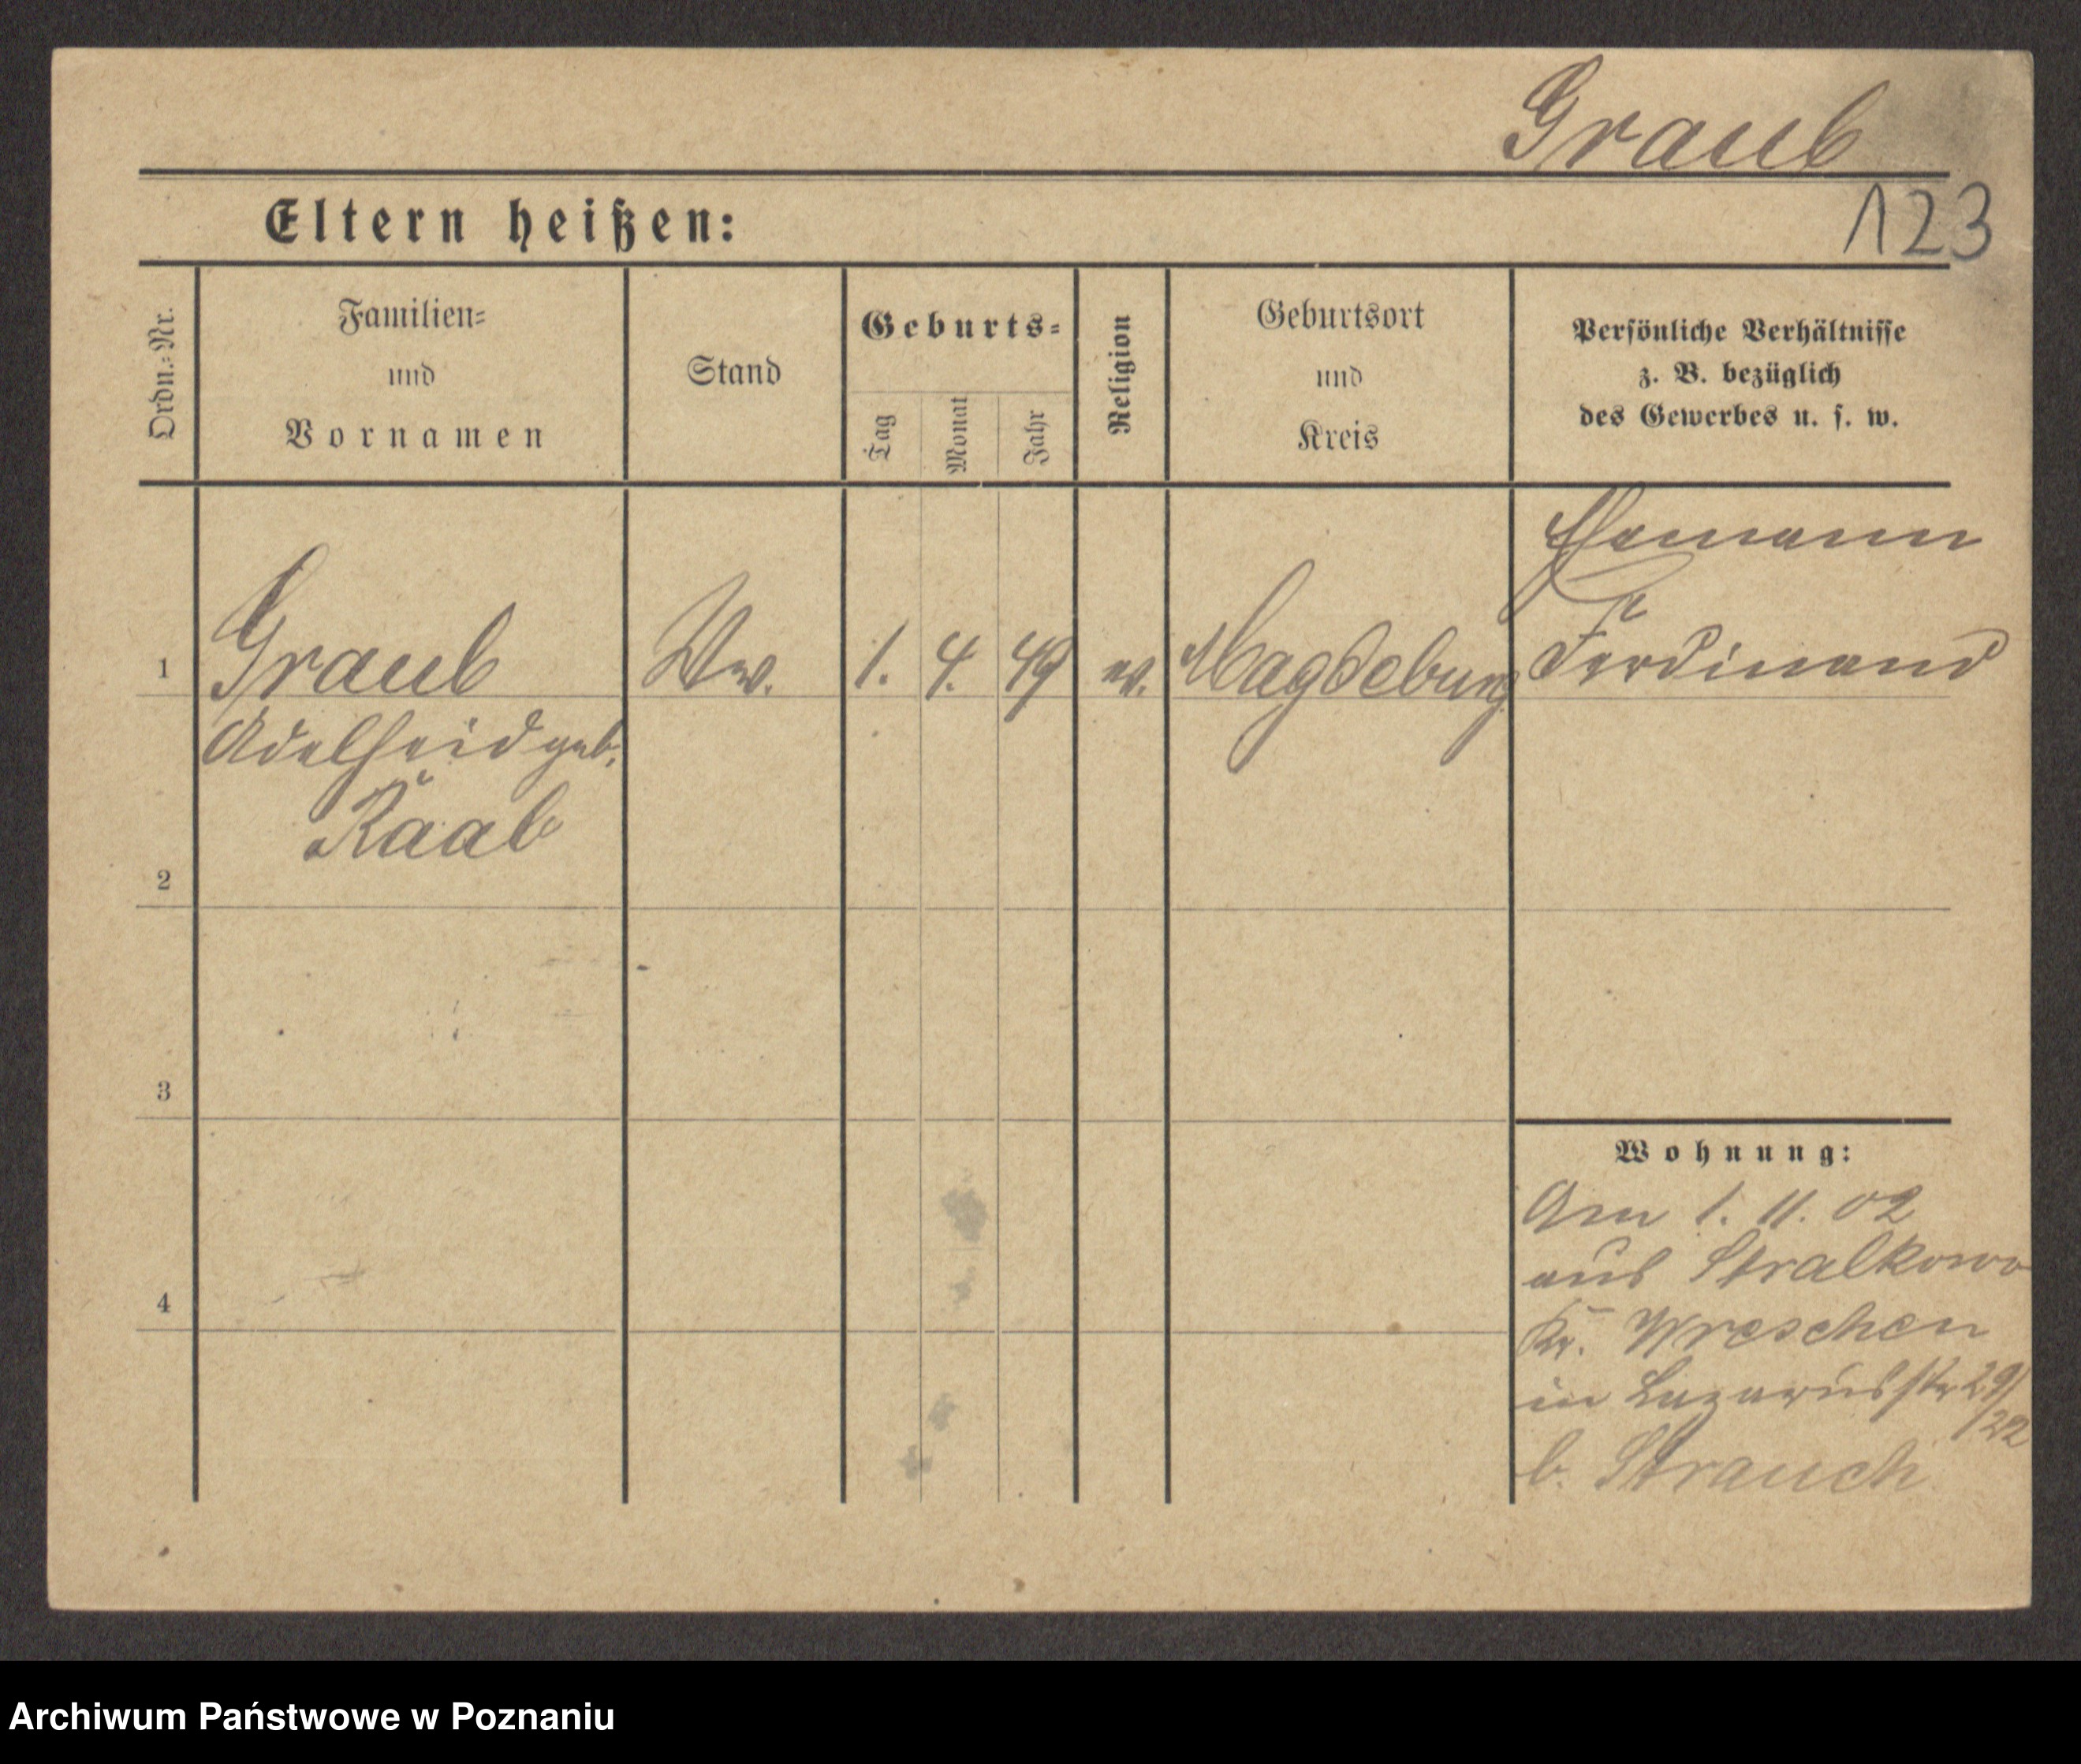 Graub
123
Eltern heißen:
Ordn.=Nr.
Familien=
und
Vornamen
Stand
Geburts=
Tag
Monat
Jahr
Religion
Geburtsort
und
Kreis
Persönliche Verhältnisse
z. B. bezüglich
des Gewerbes u. s. w.
Ehemann
1 Graub Ww. 1. 4. 49 ev. Magdeburg Ferdinand
Adelheid geb.
Raab
2
3
Wohnung:
Am 1. 11. 02
aus Stralkowo
4
Kr. Wreschen
in Lazarusstr 29/22
b. Strauch
Archiwum Państwowe w Poznaniu